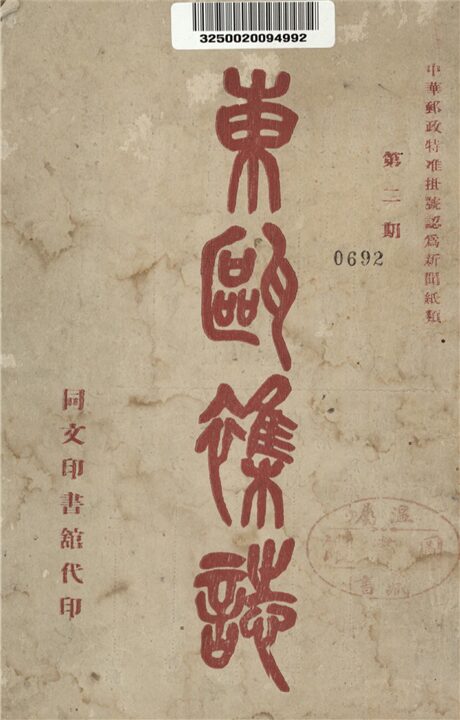 3250020094992
中華郵政特准掛號認爲新聞紙類
第二期
0692
東甌襍誌
同文印書館代印